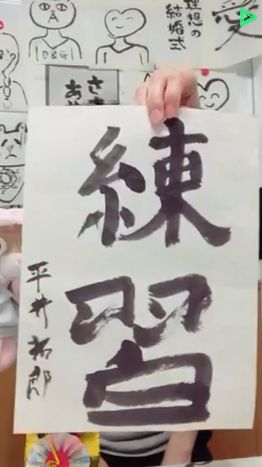 練習
平井拓郎
愛
理想の
結婚式